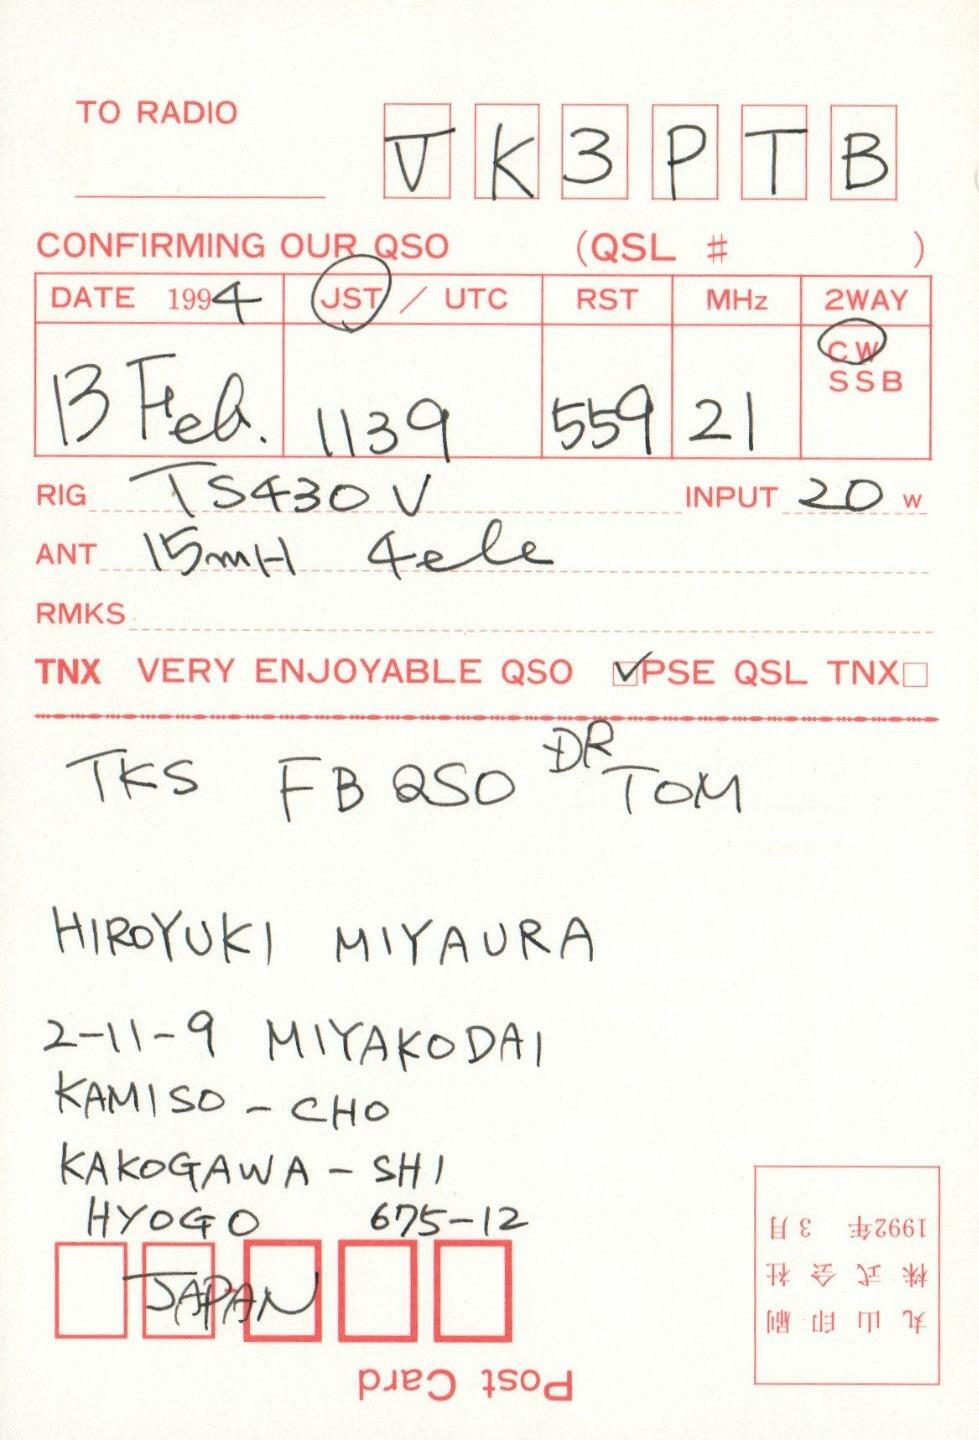 TO RADIO
VK3PTB
CONFIRMING OUR QSO (QSL # )
DATE 1994 JST / UTC RST MHz 2WAY
13 Feb. 1139 559 21 CW
SSB
RIG TS430V INPUT 20 W
ANT 15mH 4ele
RMKS
TNX VERY ENJOYABLE QSO PSE QSL TNX
TKS FB QSO DR TOM
HIROYUKI MIYAURA
2-11-9 MIYAKODAI
KAMISO-CHO
KAKOGAWA-SHI
HYOGO 675-12
JAPAN
Post Card
丸山印刷
株式会社
1992年3月